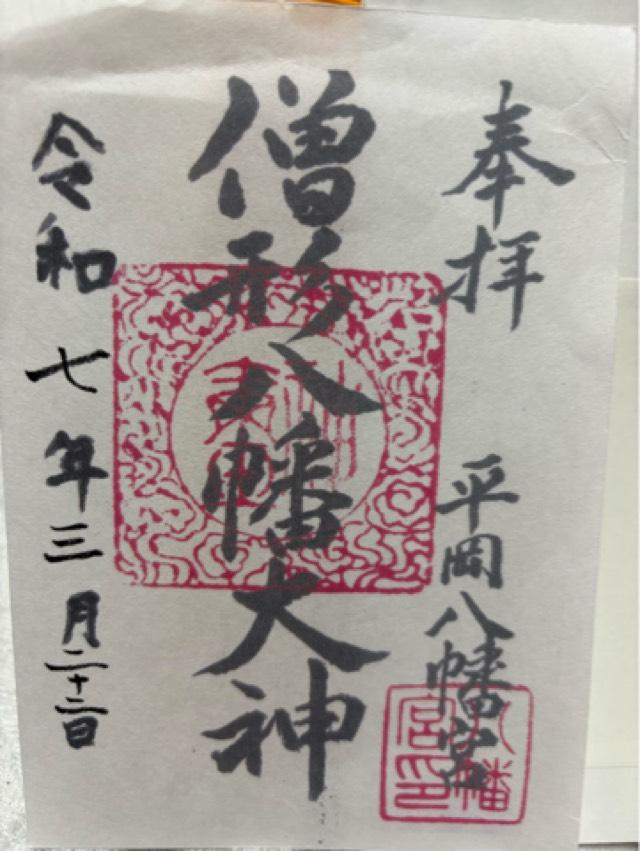 奉拝
平岡八幡宮
僧形八幡大神
令和七年三月二十二日
八幡宮印